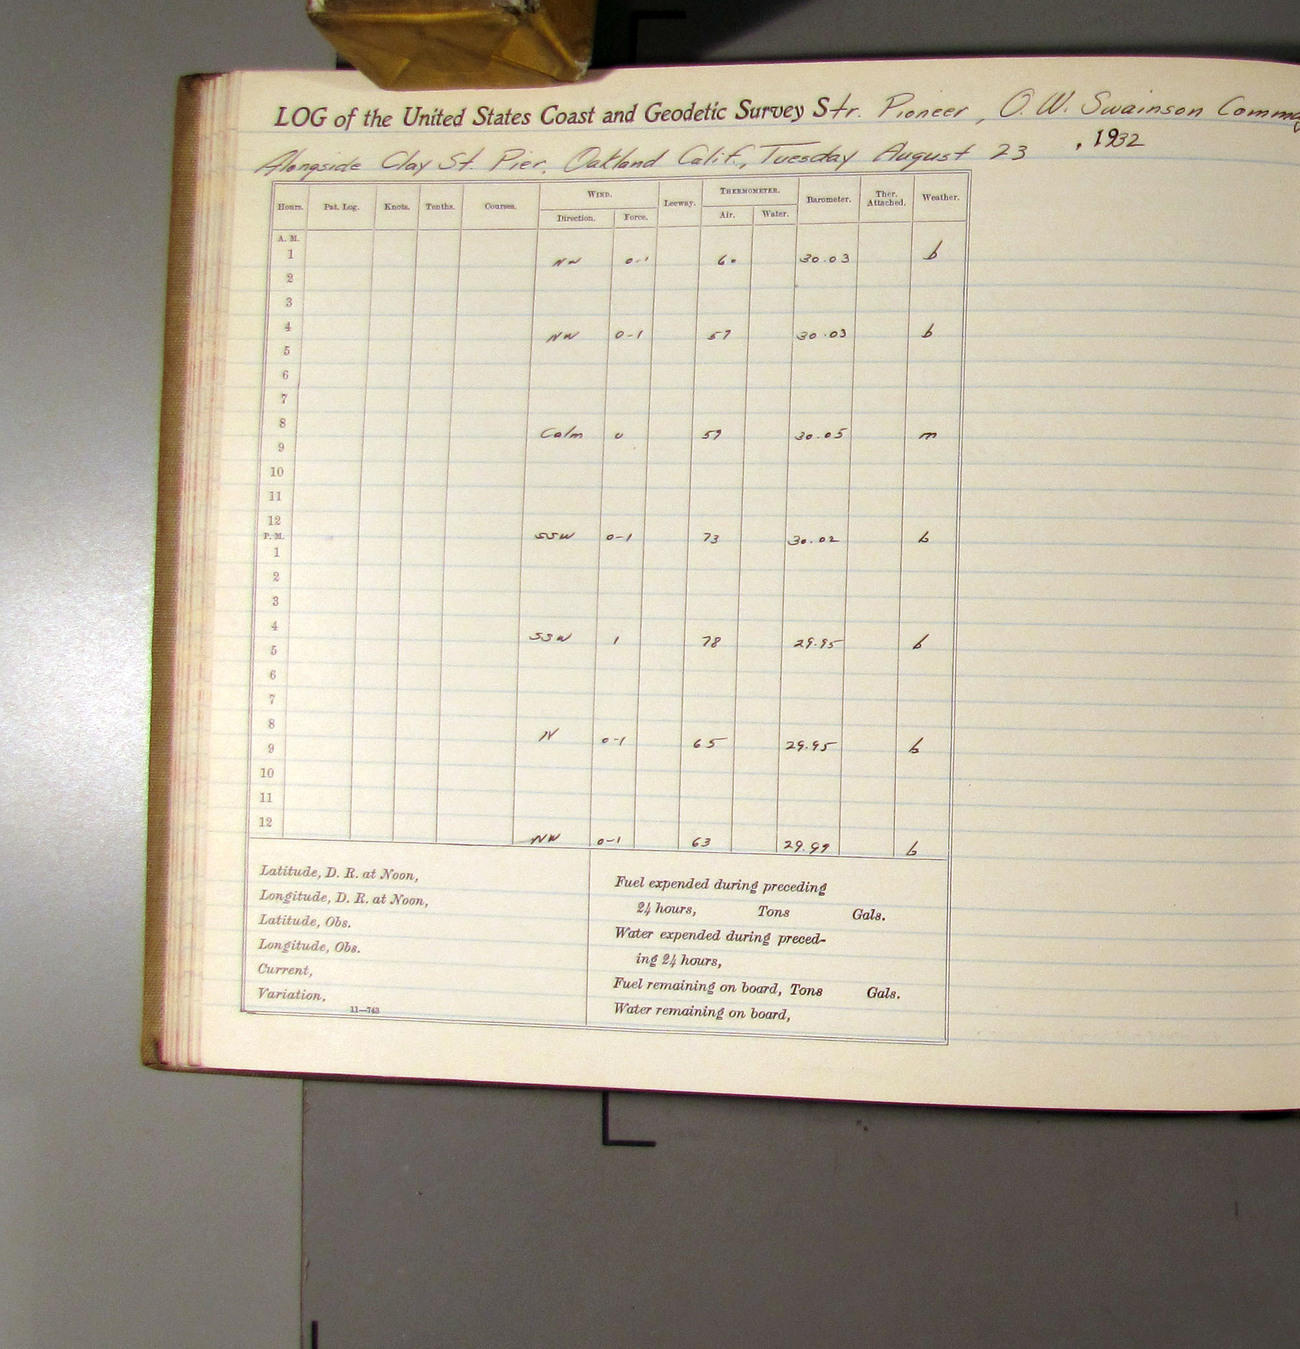 LOG of the United States Coast and Geodetic Survey Str. Pioneer, O. W. Swainson Comma
Alongside Clay St. Pier, Oakland Calif., Tuesday August 23, 1932
Hours. Pat. Log. Knots. Tenths. Courses. WIND. Leeway. THERMOMETER. Barometer. Ther. Attached. Weather.
Direction. Force. Air. Water.
A. M.
1 NW 0-1 60 30.03 b
2
3
4 NW 0-1 57 30.03 b
5
6
7
8 Calm 0 30.05 m
9
10
11
12 SSW 0-1 73 30.02 b
P. M.
1
2
3
4 SSW 1 78 29.95 b
5
6
7
8 N 0-1 65 29.95 b
9
10
11
12 NW 0-1 63 29.99 b
Latitude, D. R. at Noon,
Longitude, D. R. at Noon,
Latitude, Obs.
Longitude, Obs.
Current,
Variation,
11—743
Fuel expended during preceding
24 hours, Tons Gals.
Water expended during preced-
ing 24 hours,
Fuel remaining on board, Tons Gals.
Water remaining on board,